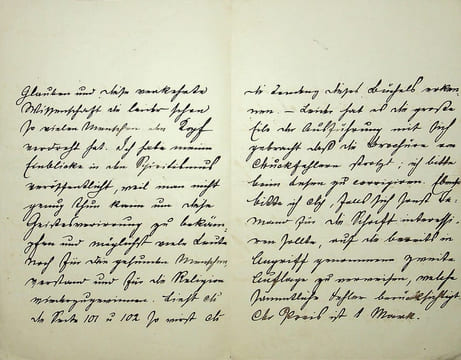 Glauben und diese verkehrte
Wissenschaft die leider schon
so vielen Menschen den Kopf
verdreht hat. Ich habe meine
Einblicke in den Spiritismus
veröffentlicht, weil man nicht
genug thun kann um diese
Geistesverirrung zu bekäm-
pfen und möglichst viele Leute
noch für den gesunden Menschen
verstand und für die Religion
wiederzugewinnen. Liest Du
die Seite 101 u 102 so wirst Du
die Tendenz dieses Büchels erken-
nen. – Leider hat es die große
Eile der Ausführung mit sich
gebracht daß die Brochüre von
Druckfehlern strotzt; ich bitte
beim Lesen zu corrigiren. Ebenso
bitte ich Dich, falls sich sonst Je-
mand für die Schrift interessi-
ren sollte, auf die bereits in
Angriff genommene zweite
Auflage zu verweisen, welche
sämmtliche Fehler berücksichtigt
Der Preis ist 1 Mark.